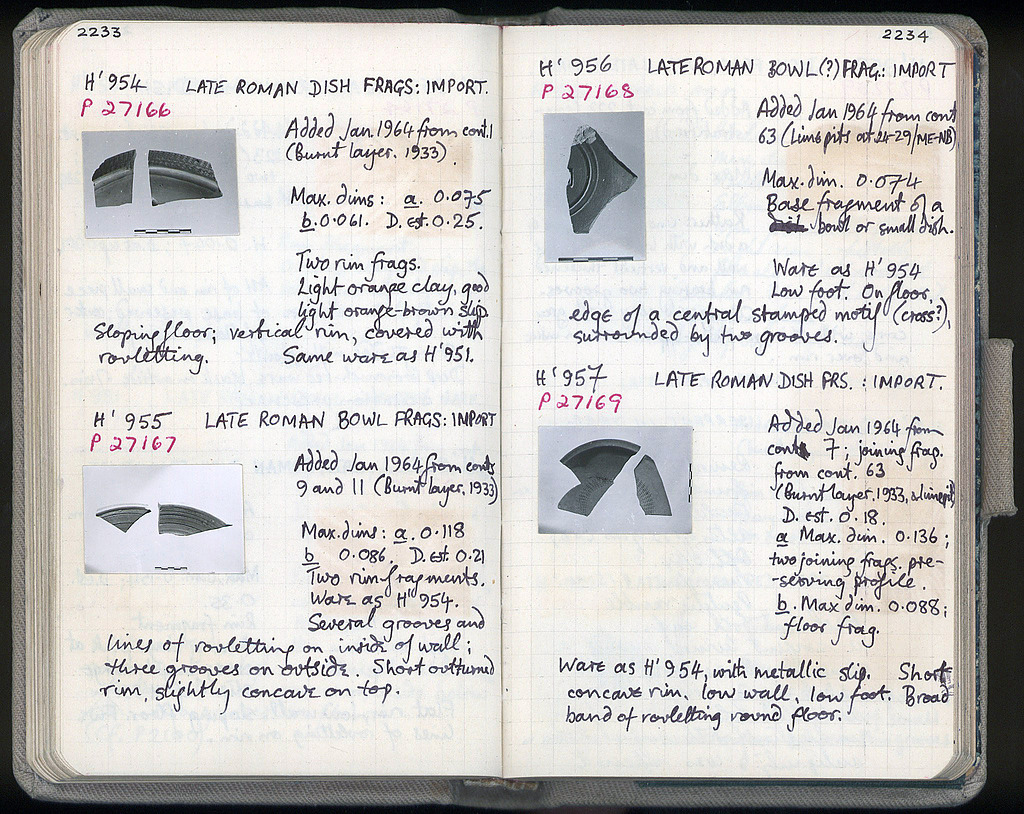 2233
H' 954 LATE ROMAN DISH FRAGS: IMPORT.
P 27166
Added Jan. 1964 from cont. 1
(Burnt layer. 1933).
Max. dims: a. 0.075
b. 0.061. D. est. 0.25.
Two rim frags.
Light orange clay, good
light orange-brown slip.
Sloping floor; vertical rim, covered with
rovletting. Same ware as H' 951.
H' 955 LATE ROMAN BOWL FRAGS: IMPORT
P 27167
Added Jan 1964 from conts
9 and 11 (Burnt layer, 1933)
Max. dims: a. 0.118
b 0.086. D. est. 0.21
Two rim fragments.
Ware as H' 954.
Several grooves and
lines of rovletting on inside of wall;
three grooves on outside. Short outturned
rim, slightly concave on top.
2234
H' 956 LATE ROMAN BOWL (?) FRAG.: IMPORT
P 27168
Added Jan 1964 from cont
63 (Lime pits at 24-29/ME-NB)
Max. dim. 0.074
Base fragment of a
dish bowl or small dish.
Ware as H' 954
Low foot. On floor,
edge of a central stamped motif (cross?),
surrounded by two grooves.
H' 957 LATE ROMAN DISH FRS. : IMPORT.
P 27169
Added Jan 1964 from
cont 7; joining frag.
from cont. 63
(Burnt layer, 1933, & lime pit)
D. est. 0.18.
a Max. dim. 0.136;
two joining frags. pre-
-serving profile.
b. Max dim. 0.088;
floor frag.
Ware as H' 954, with metallic slip. Short
concave rim, low wall, low foot. Broad
band of rovletting round floor.